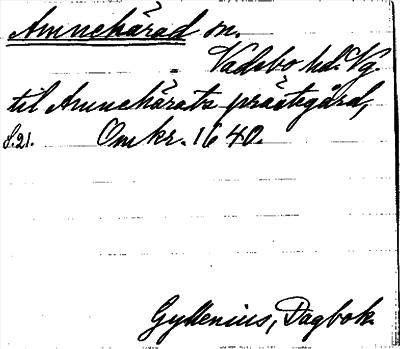 Amnehärad sn.
Vadsbo hd. Vg.
til Amnehäratz präätegård,
S.21. Omkr. 1640.
Gyllenius, Dagbok.